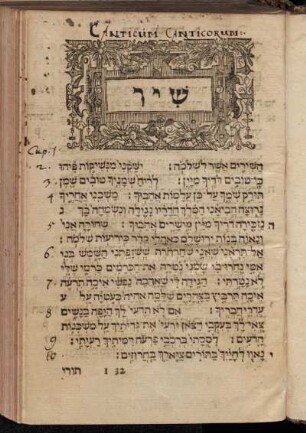 CANTICUM CANTICORUM.
שִׁיר
Cap. 1.
הַשִּׁירִים אֲשֶׁר לִשְׁלֹמֹה׃
2. יִשָּׁקֵנִי מִנְּשִׁיקוֹת פִּיהוּ
3. כִּי טוֹבִים דֹּדֶיךָ מִיָּיִן׃ לְרֵיחַ שְׁמָנֶיךָ טוֹבִים שֶׁמֶן
4 תּוּרַק שְׁמֶךָ עַל כֵּן עֲלָמוֹת אֲהֵבוּךָ׃ מָשְׁכֵנִי אַחֲרֶיךָ
נָּרוּצָה הֱבִיאַנִי הַמֶּלֶךְ חֲדָרָיו נָגִילָה וְנִשְׂמְחָה בָּךְ
ה 5 נַזְכִּירָה דֹדֶיךָ מִיַּיִן מֵישָׁרִים אֲהֵבוּךָ׃ שְׁחוֹרָה אֲנִי
וְנָאוָה בְּנוֹת יְרוּשָׁלִָם כְּאָהֳלֵי קֵדָר כִּירִיעוֹת שְׁלֹמֹה׃
6 אַל תִּרְאוּנִי שֶׁאֲנִי שְׁחַרְחֹרֶת שֶׁשְּׁזָפַתְנִי הַשָּׁמֶשׁ בְּנֵי
אִמִּי נִחֲרוּ בִי שָׂמֻנִי נֹטֵרָה אֶת הַכְּרָמִים כַּרְמִי שֶׁלִּי
7 לֹא נָטָרְתִּי׃ הַגִּידָה לִּי שֶׁאָהֲבָה נַפְשִׁי אֵיכָה תִרְעֶה
אֵיכָה תַּרְבִּיץ בַּצָּהֳרָיִם שַׁלָּמָה אֶהְיֶה כְּעֹטְיָה עַל
8 עֶדְרֵי חֲבֵרֶיךָ׃ אִם לֹא תֵדְעִי לָךְ הַיָּפָה בַּנָּשִׁים
צְאִי לָךְ בְּעִקְבֵי הַצֹּאן וּרְעִי אֶת גְּדִיֹּתַיִךְ עַל מִשְׁכְּנוֹת
9 הָרֹעִים׃ לְסֻסָתִי בְּרִכְבֵי פַרְעֹה דִּמִּיתִיךְ רַעְיָתִי׃
י 10 נָאווּ לְחָיַיִךְ בַּתֹּרִים צַוָּארֵךְ בַּחֲרוּזִים׃
132 תורי